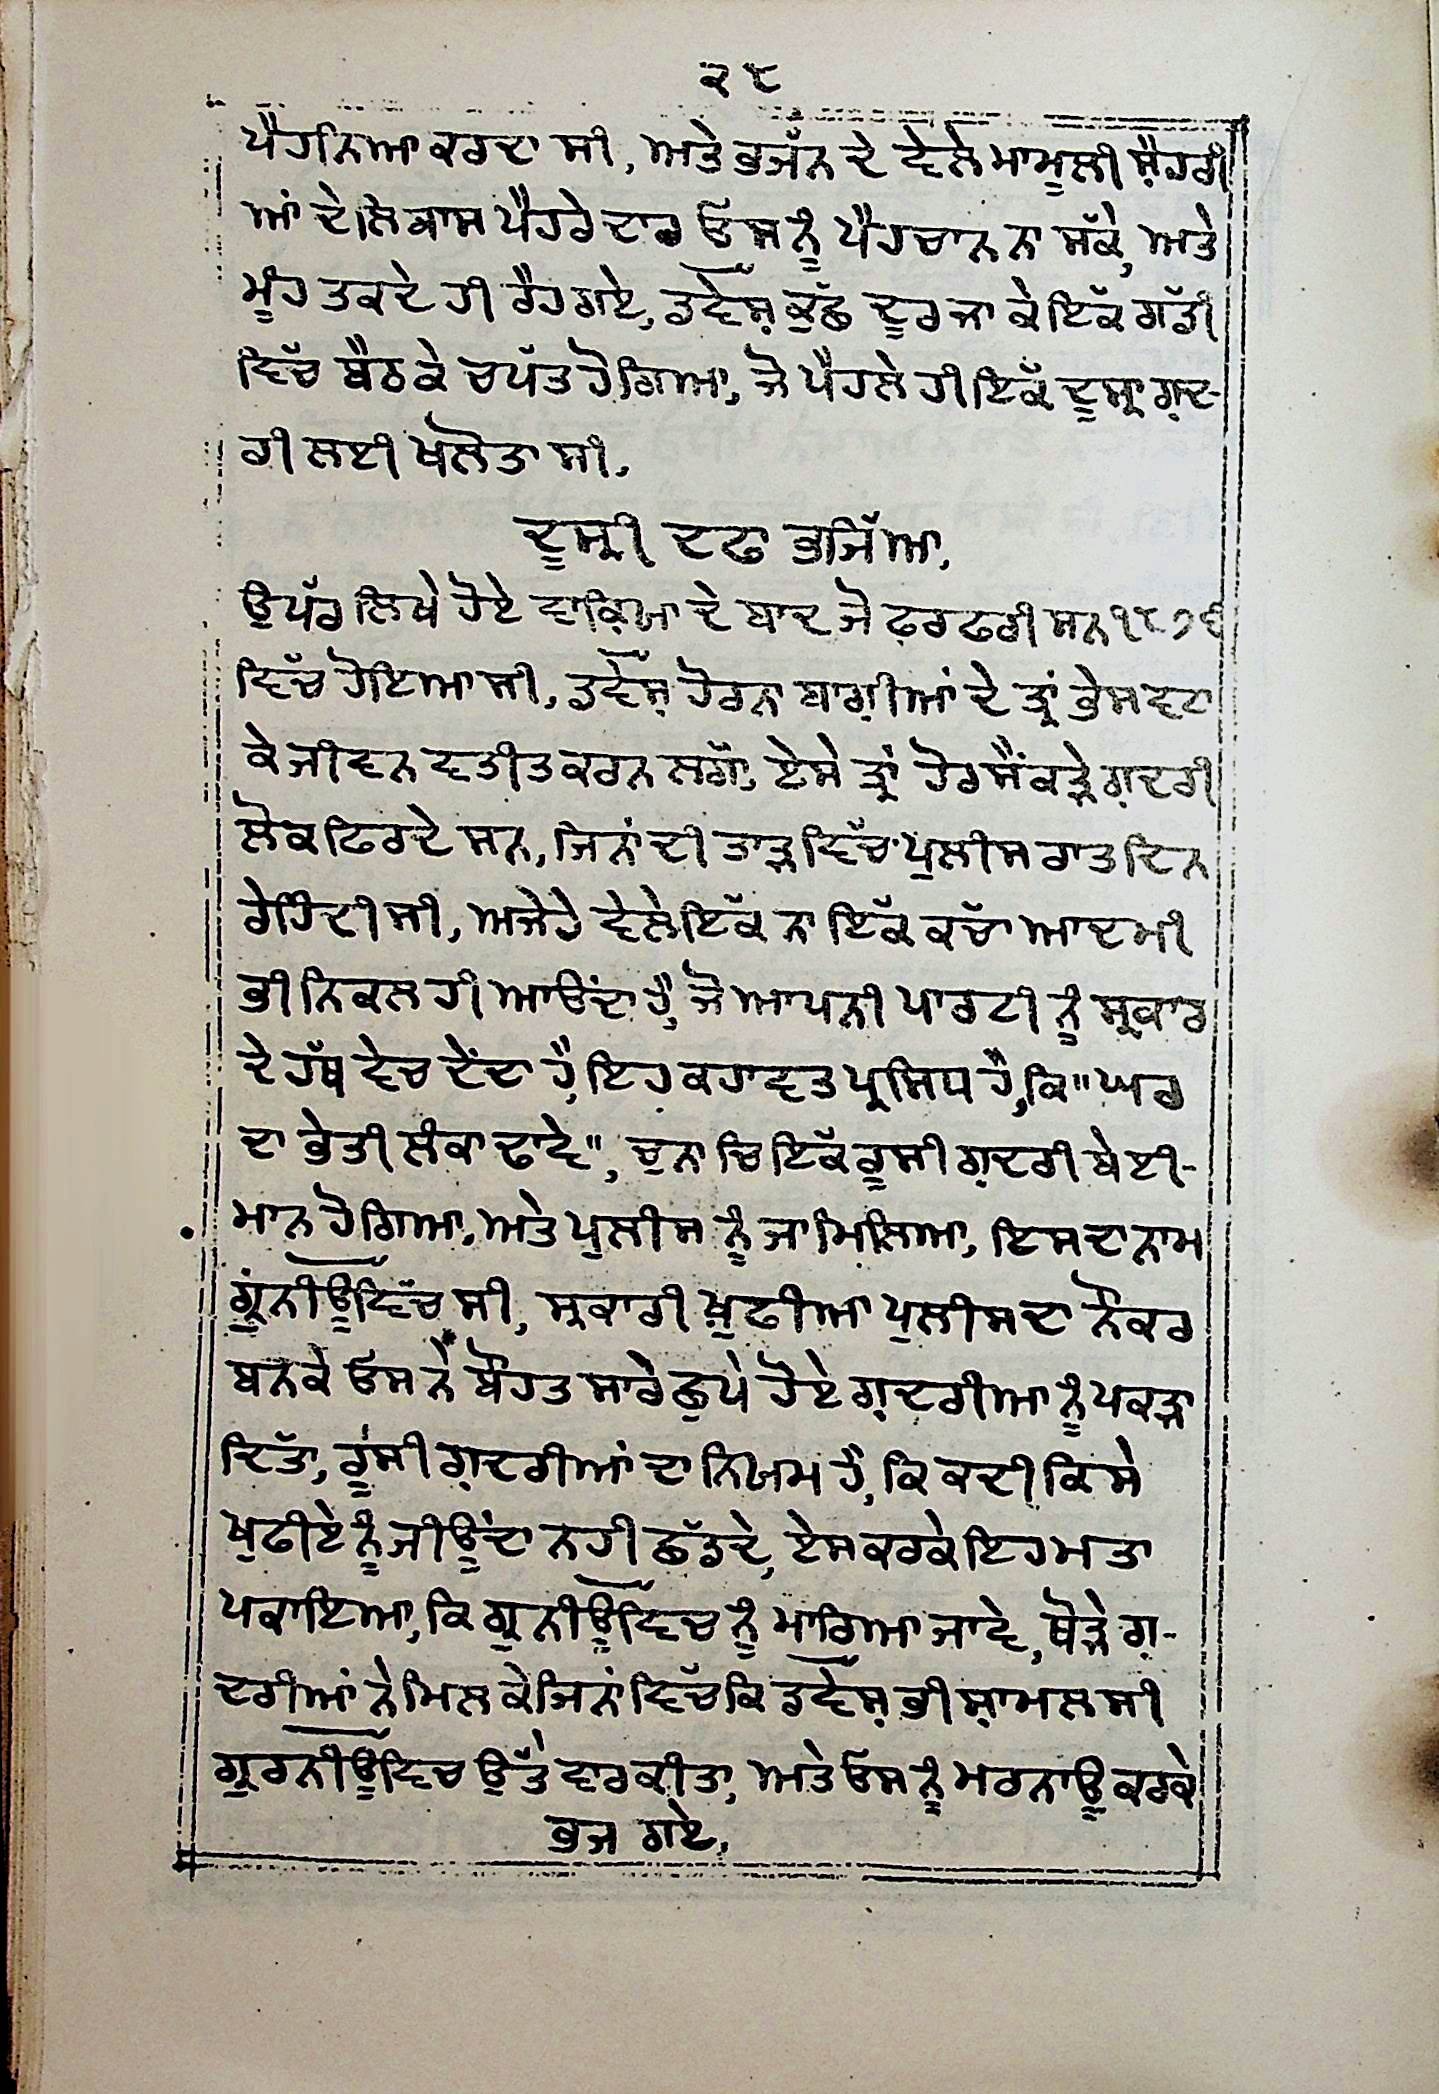 ੨੮
ਪੈਹਨਿਆ ਕਰਦਾ ਸੀ, ਅਤੇ ਭਜੱਨ ਦੇ ਵੇਲੇ ਮਾਮੂਲੀ ਸ਼ੈਹਰੀ
ਆਂ ਦੇ ਲਿਬਾਸ ਪੈਹਰੇ ਦਾਰ ਓਸ ਨੂੰ ਪੈਹਚਾਨ ਨਾ ਸੱਕੇ, ਅਤੇ
ਮੂੰਹ ਤਕਦੇ ਹੀ ਰੈਹ ਗਏ, ਡਵੋਸ਼ ਕੁੱਛ ਦੂਰ ਜਾ ਕੇ ਇੱਕ ਗੱਡੀ
ਵਿੱਚ ਬੈਠ ਕੇ ਚਪੱਤ ਹੋ ਗਿਆ, ਜੋ ਪੈਹਲੇ ਹੀ ਇੱਕ ਦੂਸ੍ਰਾ ਗ਼ਦ-
ਰੀ ਲਈ ਖਲੋਤਾ ਸੀ,
ਦੂਸ੍ਰੀ ਦਫਾ ਭਜਿੱਆ,
ਉਪੱਰ ਲਿਖੇ ਹੋਏ ਵਾਕਿਆ ਦੇ ਬਾਦ ਜੋ ਫ਼ਰਵਰੀ ਸਨ ੧੮੭੬
ਵਿੱਚ ਹੋਇਆ ਸੀ, ਡਵੋਸ਼ ਹੋਰਨਾ ਬਾਗ਼ੀਆਂ ਦੇ ਤ੍ਰਾਂ ਭੇਸ ਵਟਾ
ਕੇ ਜੀਵਨ ਵਤੀਤ ਕਰਨ ਲਗੱਾ, ਏਸੇ ਤ੍ਰਾਂ ਹੋਰ ਸੈਂਕੜੇ ਗ਼ਦਰੀ
ਲੋਕ ਫਿਰਦੇ ਸਨ, ਜਿਨਾਂ ਦੀ ਤਾੜ ਵਿੱਚ ਪੁਲੀਸ ਰਾਤ ਦਿਨ
ਰੇਹਿੰਦੀ ਸੀ, ਅਜੇਹੇ ਵੇਲੇ ਇੱਕ ਨਾ ਇੱਕ ਕਚੱਾ ਆਦਮੀ
ਭੀ ਨਿਕਲ ਹੀ ਆਓਂਦਾ ਹੈ, ਜੋ ਆਪਨੀ ਪਾਰਟੀ ਨੂੰ ਸ੍ਰਕਾਰ
ਦੇ ਹੱਥ ਵੇਚ ਦੇਂਦਾ ਹੈ, ਇਹ ਕਹਾਵਤ ਪ੍ਰਸਿਧ ਹੈ, ਕਿ "ਘਰ
ਦਾ ਭੇਤੀ ਲੰਕਾ ਢਾਵੇ", ਚੁਨਾਚਿ ਇੱਕ ਰੂਸੀ ਗ਼ਦਰੀ ਬੇਈ-
ਮਾਨ ਹੋ ਗਿਆ, ਅਤੇ ਪੁਲੀਸ ਨੂੰ ਜਾ ਮਿਲਿਆ, ਇਸ ਦਾ ਨਾਮ
ਸੀ, ਸ੍ਰਕਾਰੀ ਖ਼ੁਫੀਆ ਪੁਲੀਸ ਦਾ ਨੌਕਰ
ਬਨਕੇ ਓਸ ਨੇ ਬੌਹਤ ਸਾਰੇ ਛੁਪੇ ਹੋਏ ਗ਼ਦਰੀਆ ਨੂੰ ਪਕੜਾ
ਦਿੱਤਾ, ਰੂਸੀ ਗ਼ਦਰੀਆਂ ਦਾ ਨਿਯਮ ਹੈ, ਕਿ ਕਦੀ ਕਿਸੇ
ਖੁਫੀਏ ਨੂੰ ਜੀਊਂਦਾ ਨਹੀ ਛੱਡਦੇ, ਏਸ ਕਰਕੇ ਇਹ ਮਤਾ
ਪਕਾਇਆ, ਕਿ ਨੂੰ ਮਾਰਿਆ ਜਾਵੇ, ਥੋੜੇ ਗ਼-
ਦਰੀਆਂ ਨੇ ਮਿਲ ਕੇ ਜਿਨਾਂ ਵਿੱਚ ਕਿ ਡਵੋਸ਼ ਭੀ ਸ਼ਾਮਲ ਸੀ
ਗੁਰਨੀਊਵਿਚ ਉਤੇ ਵਾਰ ਕੀਤਾ, ਅਤੇ ਓਸ ਨੂੰ ਮਰਨਾਊ ਕਰਕੇ
ਭਜ ਗਏ,